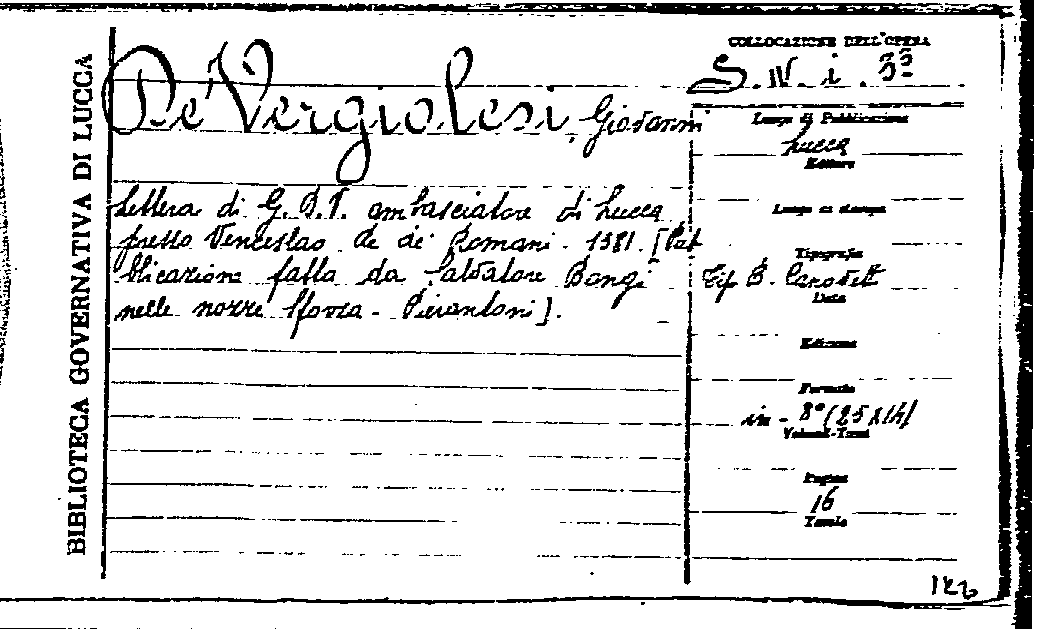 BIBLIOTECA GOVERNATIVA DI LUCCA
De' Vergiolesi, Giovanni
Lettera di G. D. V. ambasciatore di Lucca
presso Venceslao Re dei Romani. 1381. [Pub
blicazione fatta da Salvatore Bongi
nelle nozze Sforza - Pierantoni].
COLLOCAZIONE DELL'OPERA
S. IV. i. 33
Luogo di Pubblicazione
Lucca
Editore
Luogo di stampa
Tipografia
Tip B. Canovetti
Data
Edizione
Formato
in - 8° (25x14)
Volumi-Tomi
Pagine
16
Tavole